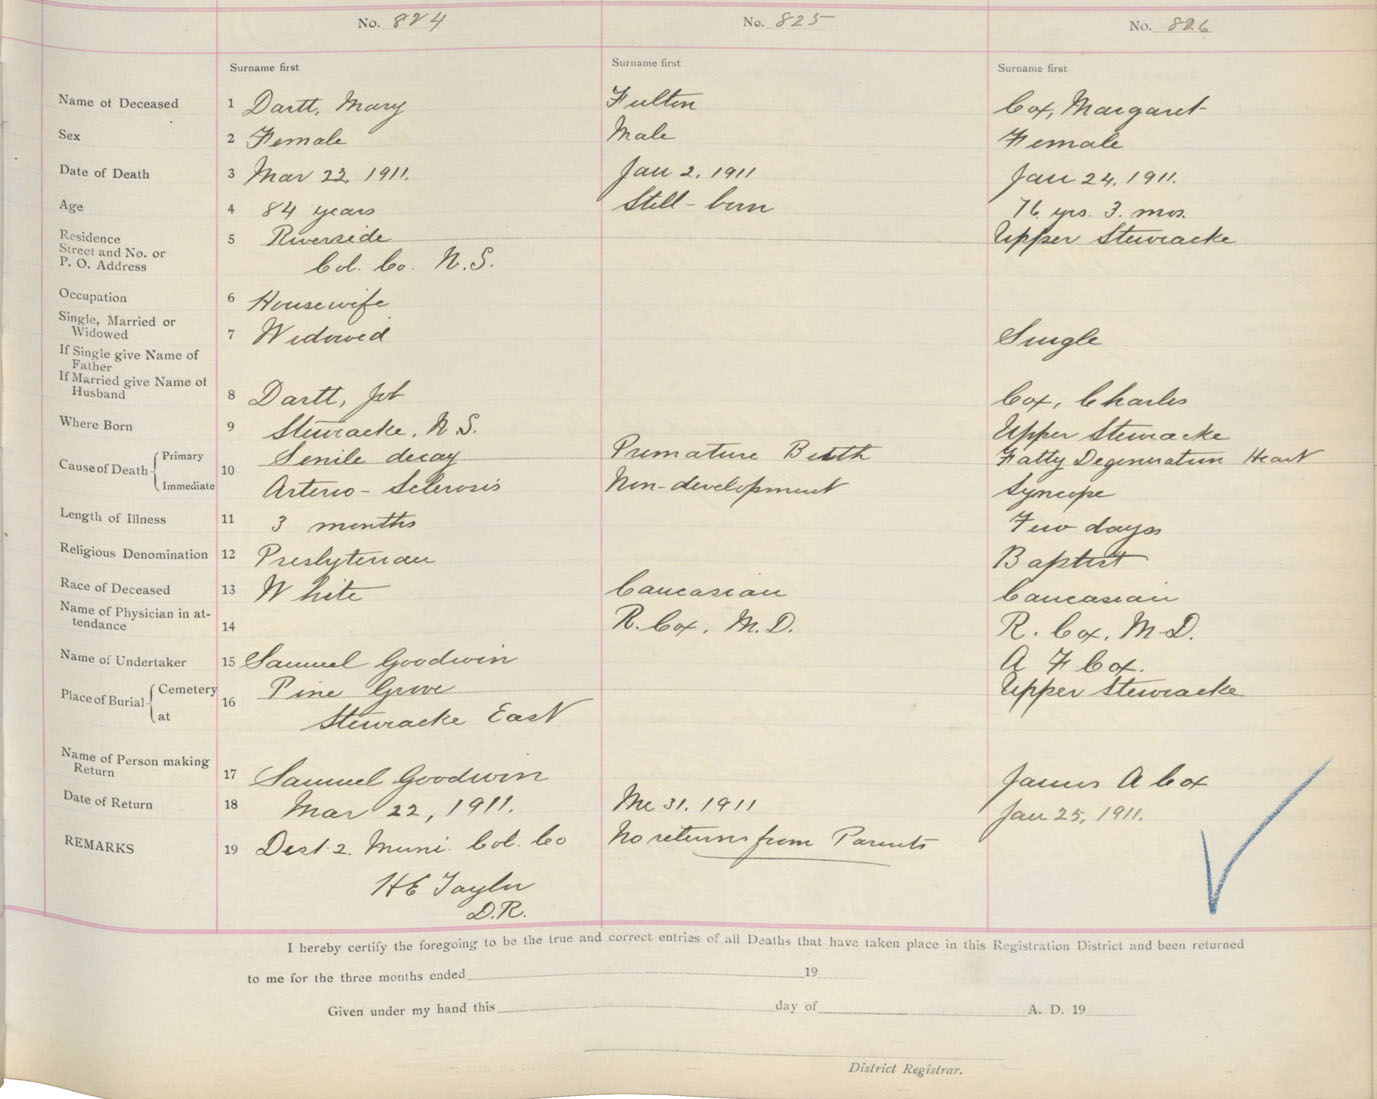 No. 824 No. 825 No. 826
Surname first Surname first Surname first
Name of Deceased 1 Dartt, Mary Fulton Cox, Margaret
Sex 2 Female Male Female
Date of Death 3 Mar 22 1911. Jan 2, 1911 Jan 24, 1911.
Age 4 84 years Still-born 76 yrs. 3. mos.
Residence 5 Riverside Upper Stewiacke
Street and No. or
P. O. Address Col. Co. N.S.
Occupation 6 Housewife
Single, Married or
Widowed 7 Widowed Single
If Single give Name of
Father
If Married give Name of
Husband 8 Dartt, Job Cox, Charles
Where Born 9 Stewiacke, N.S. Upper Stewiacke
Cause of Death Primary 10 Senile decay Premature Birth Fatty Degeneration Heart
Immediate Arterio-Sclerosis Non-development Syncope
Length of Illness 11 3 months Few days
Religious Denomination 12 Presbyterian Baptist
Race of Deceased 13 White Caucasian Caucasian
Name of Physician in at-
tendance 14 R. Cox, M.D. R. Cox, M.D.
Name of Undertaker 15 Samuel Goodwin A F Cox.
Place of Burial Cemetery 16 Pine Grove Upper Stewiacke
at Stewiacke East
Name of Person making
Return 17 Samuel Goodwin James A Cox
Date of Return 18 Mar 22, 1911. 31, 1911 Jan 25, 1911.
REMARKS 19 Dist. 2. Muni. Col. Co No returns from Parents
H E Taylor
D.R.
I hereby certify the foregoing to be the true and correct entries of all Deaths that have taken place in this Registration District and been returned
to me for the three months ended 19
Given under my hand this day of A. D. 19
District Registrar.